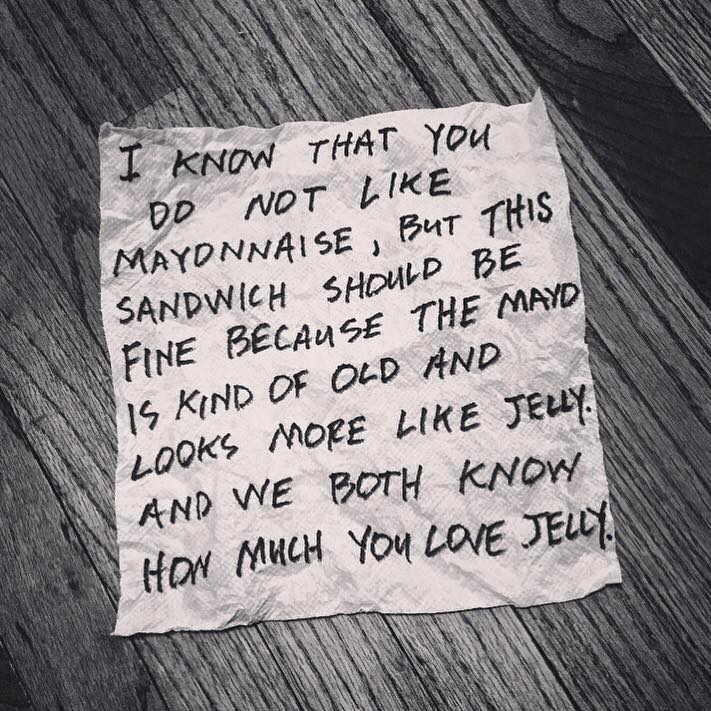 I KNOW THAT YOU
DO NOT LIKE
MAYONNAISE, BUT THIS
SANDWICH SHOULD BE
FINE BECAUSE THE MAYO
IS KIND OF OLD AND
LOOKS MORE LIKE JELLY.
AND WE BOTH KNOW
HOW MUCH YOU LOVE JELLY.